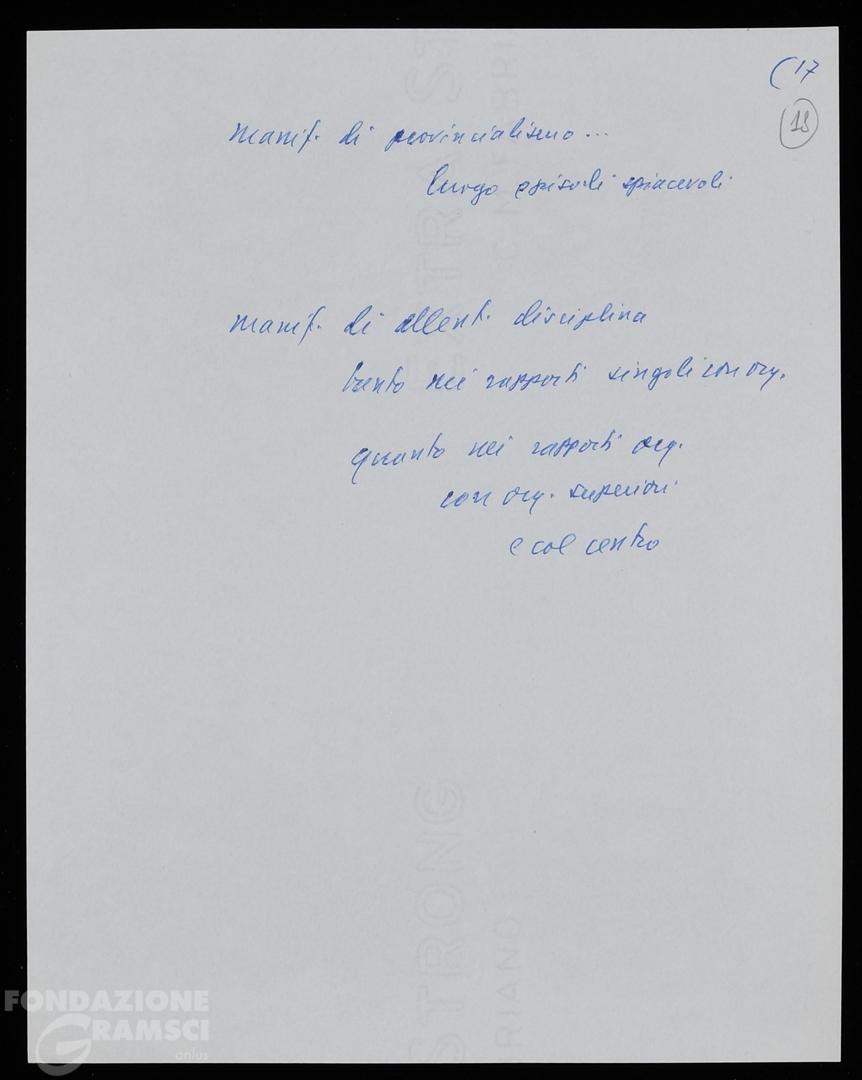 (17
18
manif. di provincialismo...
luogo episodi spiacevoli
manif. di allent. disciplina
tanto nei rapporti singoli con org.
quanto nei rapporti org.
con org. superiori
e col centro
STRONG
FONDAZIONE
GRAMSCI
onlus